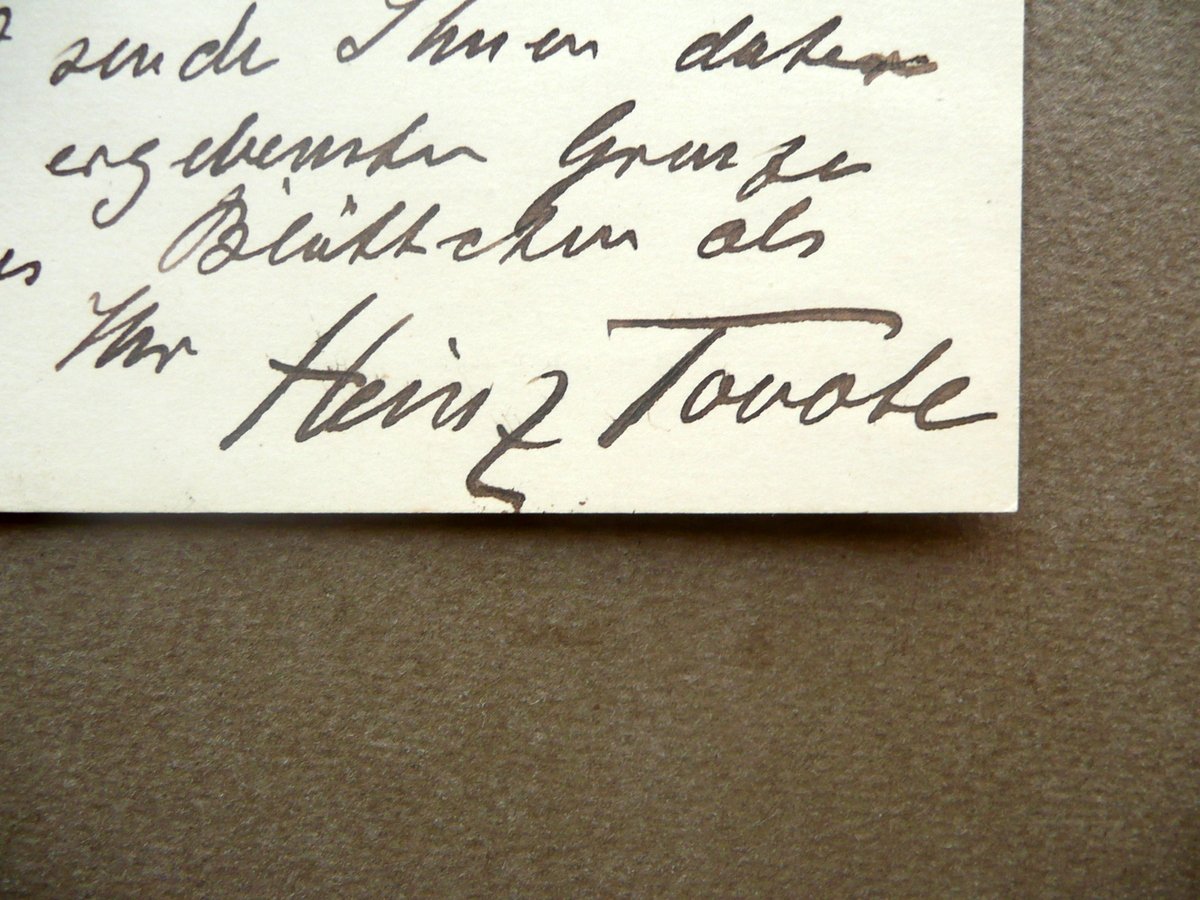 sende Ihnen daher
ergebenster Grusze
Blättchen als
Ihr Heinz Tovote